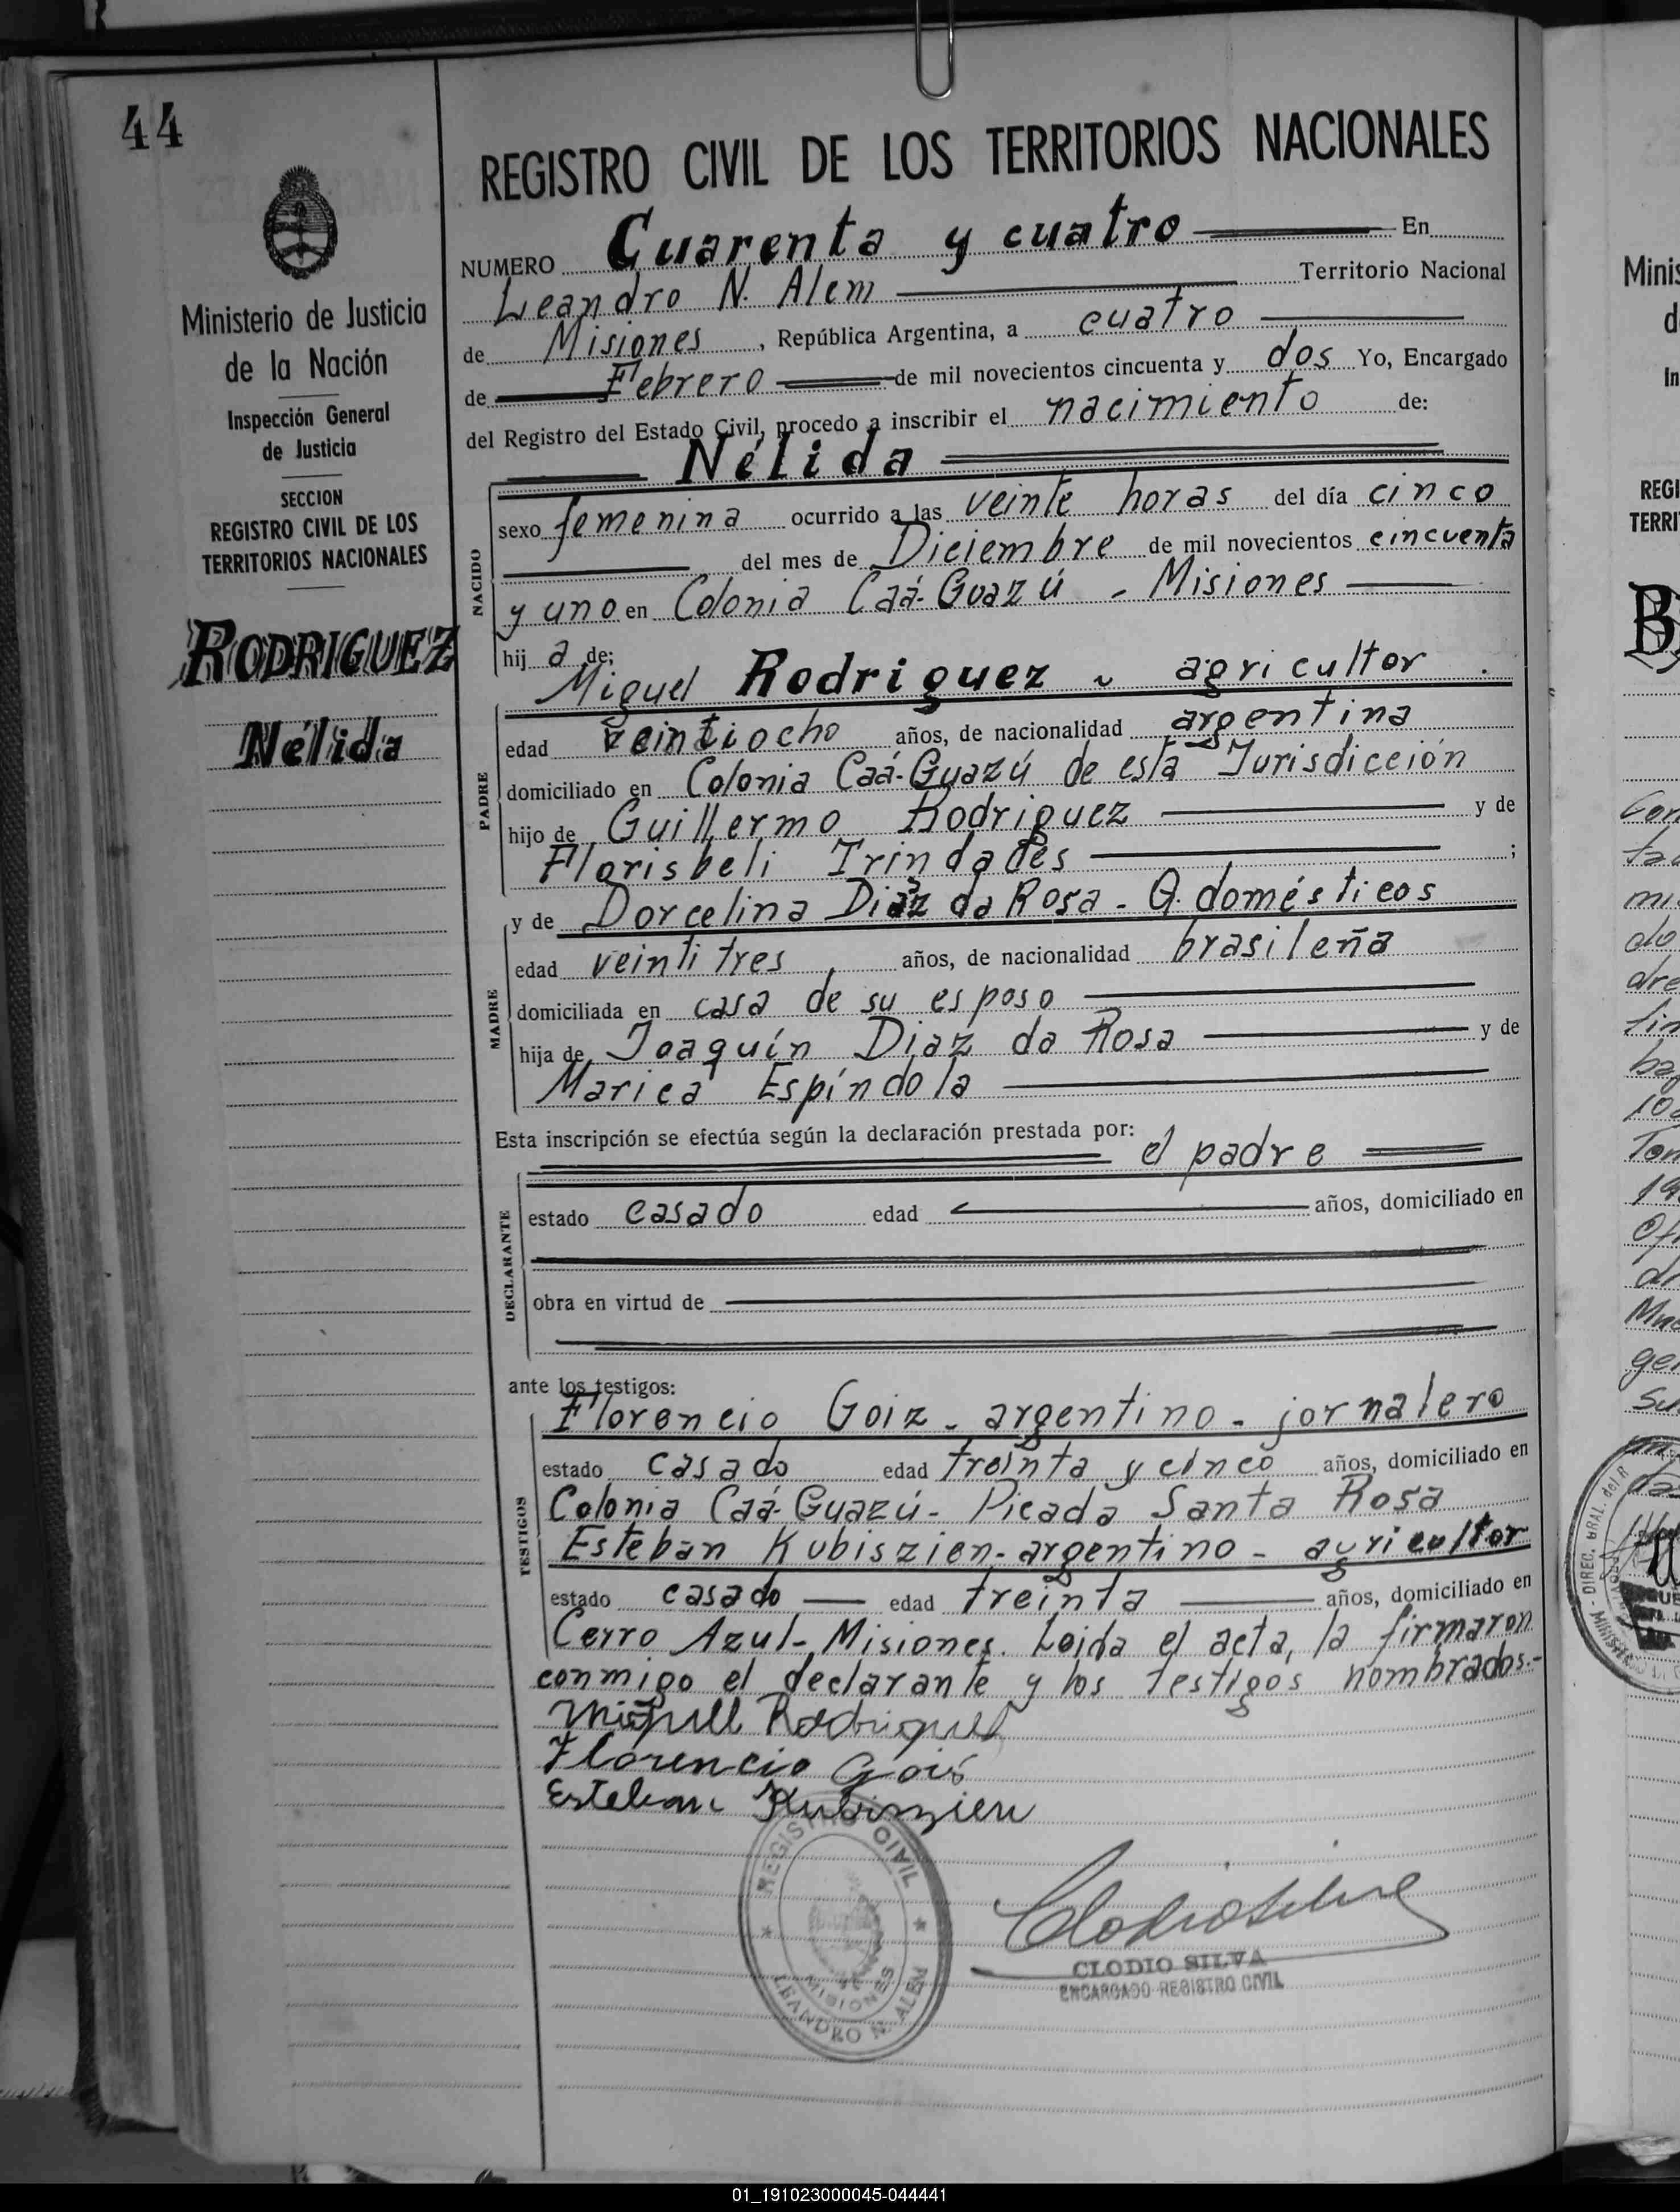 44
Ministerio de Justicia
de la Nación
Inspección General
de Justicia
SECCION
REGISTRO CIVIL DE LOS
TERRITORIOS NACIONALES
RODRIGUEZ
Nélida
REGISTRO CIVIL DE LOS TERRITORIOS NACIONALES
NUMERO Cuarenta y cuatro En
Leandro N. Alem Territorio Nacional
de Misiones, República Argentina, a cuatro
de Febrero de mil novecientos cincuenta y dos Yo, Encargado
del Registro del Estado Civil, procedo a inscribir el nacimiento de:
Nélida
NACIDO
sexo femenina ocurrido a las veinte horas del día cinco
del mes de Diciembre de mil novecientos cincuenta
y uno en Colonia Caá-Guazú - Misiones
hij a de;
Miguel Rodriguez - agricultor.
PADRE
edad veintiocho años, de nacionalidad argentina
domiciliado en Colonia Caá-Guazú de esta Jurisdicción
hijo de Guillermo Rodriguez y de
Florisbeli Trindades ;
MADRE
y de Dorcelina Diaz da Rosa - Q. domésticos
edad veintitres años, de nacionalidad brasileña
domiciliada en casa de su esposo
hija de Joaquín Diaz da Rosa y de
Marica Espíndola
Esta inscripción se efectúa según la declaración prestada por:
el padre
DECLARANTE
estado casado edad años, domiciliado en
obra en virtud de
ante los testigos:
TESTIGOS
Florencio Goiz - argentino - jornalero
estado casado edad treinta y cinco años, domiciliado en
Colonia Caá-Guazú - Picada Santa Rosa
Esteban Kubiszien - argentino - agricultor
estado casado edad treinta años, domiciliado en
Cerro Azul - Misiones. Leida el acta, la firmaron
conmigo el declarante y los testigos nombrados.-
Miguell Rodriguez
Florencio Gois
Esteban Kubiszien
REGISTRO CIVIL
MISIONES
LEANDRO N. ALEM
CLODIO SILVA
ENCARGADO REGISTRO CIVIL
01_191023000045-044441